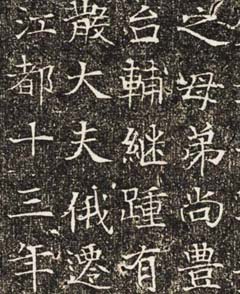 之母弟尚豊
台輔継踵有
散大夫俄遷
江都十三年